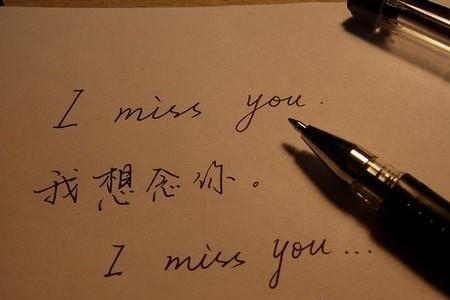 I miss you.
我想念你。
I miss you...